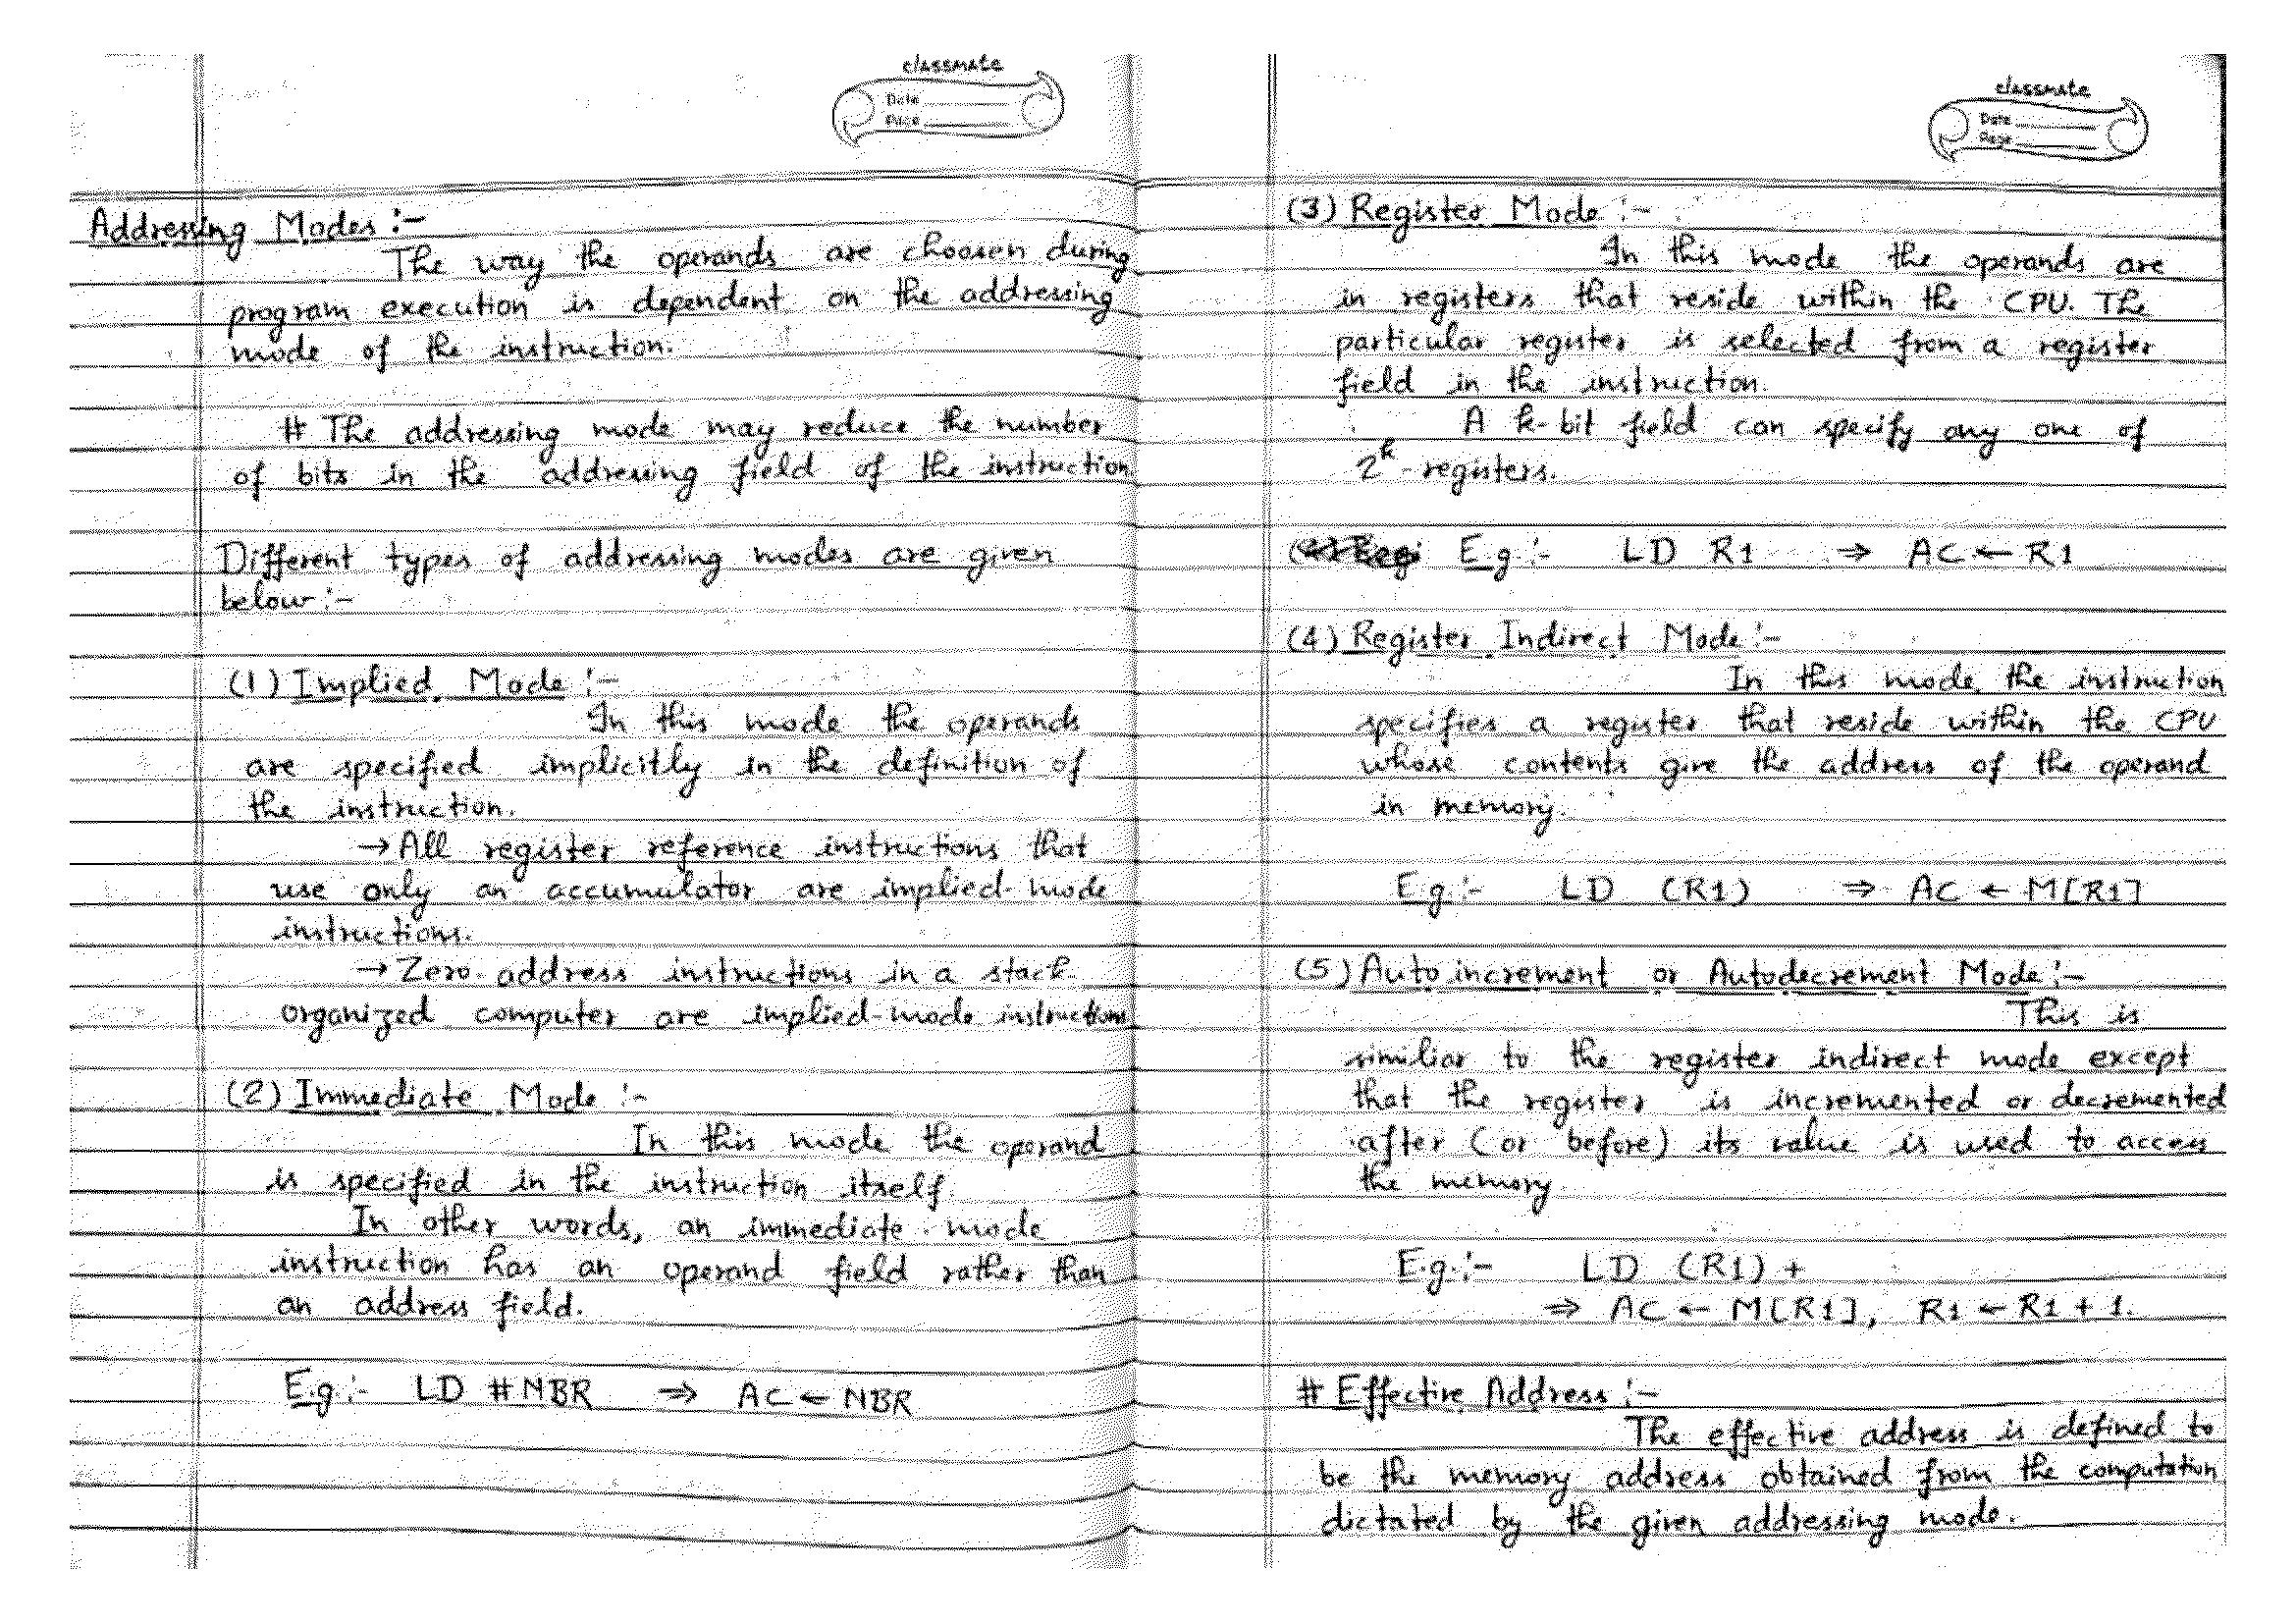 classmate
Date
Page
Addressing Modes :-
The way the operands are choosen during
program execution is dependent on the addressing
mode of the instruction.
# The addressing mode may reduce the number
of bits in the addressing field of the instruction
Different types of addressing modes are given
below :-
(1) Implied Mode :-
In this mode the operands
are specified implicitly in the definition of
the instruction.
→ All register reference instructions that
use only an accumulator are implied-mode
instructions.
→ Zero-address instructions in a stack-
organized computer are implied-mode instructions
(2) Immediate Mode :-
In this mode the operand
is specified in the instruction itself.
In other words, an immediate-mode
instruction has an operand field rather than
an address field.
E.g.:- LD #NBR ⇒ AC ← NBR
classmate
Date
Page
(3) Register Mode :-
In this mode the operands are
in registers that reside within the CPU. The
particular register is selected from a register
field in the instruction.
A k-bit field can specify any one of
2^k - registers.
E.g.:- LD R1 ⇒ AC ← R1
(4) Register Indirect Mode :-
In this mode the instruction
specifies a register that reside within the CPU
whose contents give the address of the operand
in memory.
E.g.:- LD (R1) ⇒ AC ← M[R1]
(5) Auto increment or Autodecrement Mode :-
This is
similiar to the register indirect mode except
that the register is incremented or decremented
after (or before) its value is used to access
the memory.
E.g.:- LD (R1) +
⇒ AC ← M[R1], R1 ← R1 + 1.
# Effective Address :-
The effective address is defined to
be the memory address obtained from the computation
dictated by the given addressing mode.